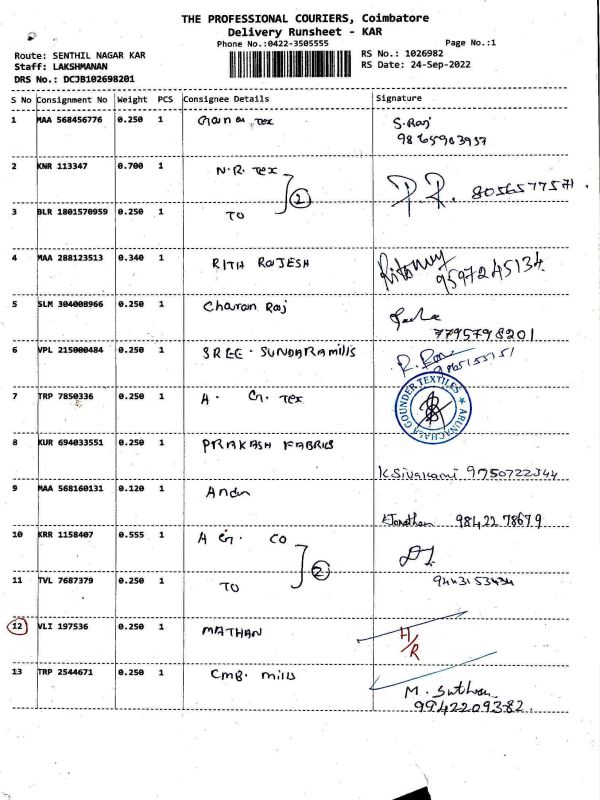 THE PROFESSIONAL COURIERS, Coimbatore
Delivery Runsheet - KAR
Phone No.:0422-3505555 Page No.:1
Route: SENTHIL NAGAR KAR RS No.: 1026982
Staff: LAKSHMANAN RS Date: 24-Sep-2022
DRS No.: DCJB102698201
S No Consignment No Weight PCS Consignee Details Signature
1 MAA 568456776 0.250 1 Tex S. Raj
9865903937
2 KNR 113347 0.700 1 N.R. Tex 2 P.R. 8056577571
3 BLR 1801570959 0.250 1 TO
4 MAA 288123513 0.340 1 RITH RAJESH 9597245134
5 SLM 304008966 0.250 1 Charan Raj
7795798201
6 VPL 215000484 0.250 1 SREE. SUNDARA mills
7 TRP 7850336 0.250 1 A. Gr. Tex ARUNACHALA GOUNDER TEXTILES
8 KUR 694033551 0.250 1 PRAKASH FABRICS
K Sivakami 9750722344
9 MAA 568160131 0.120 1
98422 78679
10 KRR 1158407 0.555 1 A Gr. CO 2
11 TVL 7687379 0.250 1 TO 9443153434
12 VLI 197536 0.250 1 MATHAN H/R
13 TRP 2544671 0.250 1 CMB. mills
M.
9942209382.